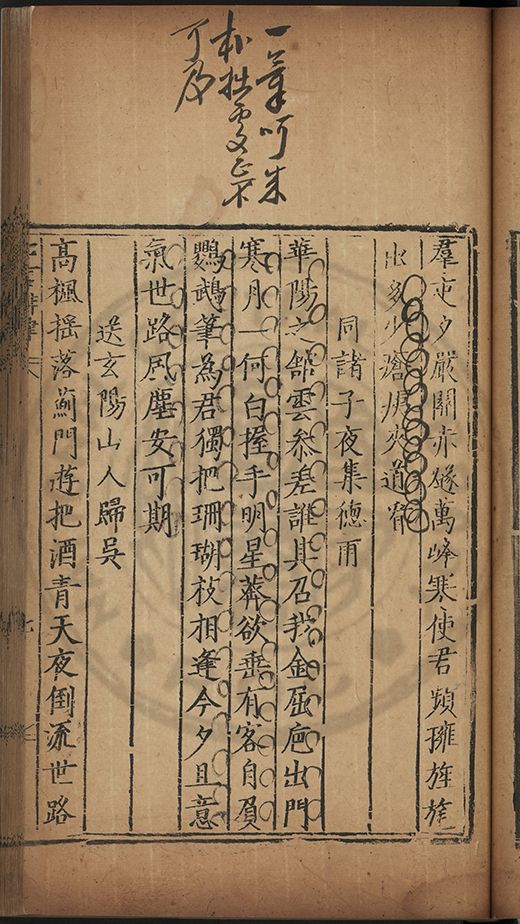 一篇叮朱
朴拙處正不
可及
羣吏夕嚴關赤燧萬峰寒使君頻擁旌旄
出多少瘡痍夾道看
同諸子夜集德雨
華陽之館雲參差誰其召我金屈卮出門
寒月一何白握手明星葬欲垂有客自負
鸚鵡筆為君獨把珊瑚枝相逢今夕且意
氣世路風塵安可期
送玄陽山人歸吳
高楓搖落薊門遊把酒青天夜倒流世路
七